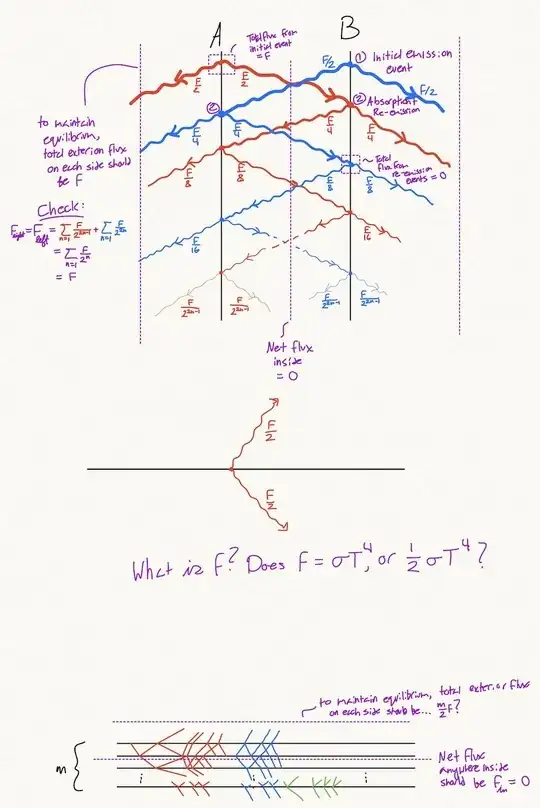 A
B
Total flux from
initial event
= F
F/2
① Initial emission
event
F/2
F/2
F/2
②
② Absorption +
Re-emission
to maintain
equilibrium,
total exterior flux
on each side should
be F
F/4
F/4
F/4
F/4
Total
flux from
re-emission
events = 0
F/8
F/8
F/8
F/8
Check:
F_right = F_left = Σ_{n=1} F/2^{2n-1} + Σ_{n=1} F/2^{2n}
= Σ_{n=1} F/2^n
= F
F/16
F/16
F/2^{2n-1}
F/2^{2n-1}
F/2^{2n-1}
F/2^{2n-1}
Net flux
inside
= 0
F/2
F/2
What is F? Does F = σT⁴, or ½ σT⁴?
to maintain equilibrium, total exterior flux
on each side should be... m/2 F?
m
Net Flux
anywhere inside
should be F_in = 0